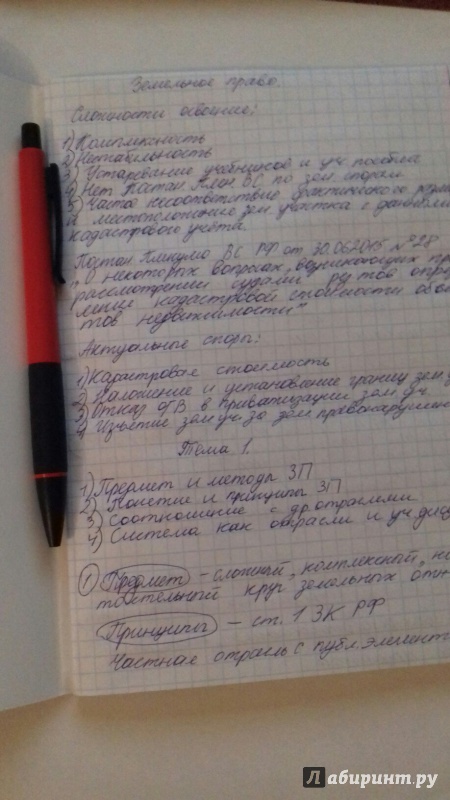 Земельное право.
Сложности освоения:
1) Комплексность
2) Нестабильность
3) Устаревание учебников и уч. пособий
4) Нет Постан. Плен. ВС по зем. спорам
5) Часто несоответствие фактического
и местоположение зем. участка с данными
кадастрового учёта.
Постан. Пленума ВС РФ от 30.06.2015 №28
"О некоторых вопросах, возникающих при
рассмотрении судами
кадастровой стоимости
тов недвижимости"
Актуальные споры:
1) Кадастровая стоимость
2) Наложение и установление границ зем.
3) Отказ ОГВ в приватизации зем. уч.
4) Изъятие зем. уч. за зем.
Тема 1.
1) Предмет и методы ЗП
2) Понятие и принципы ЗП
3) Соотношение с др. отраслями
4) Система как отрасли и уч.
1) Предмет - сложный, комплексный,
круг земельных
Принципы - ст. 1 ЗК РФ
Частная отрасль с публ.
Лабиринт.ру